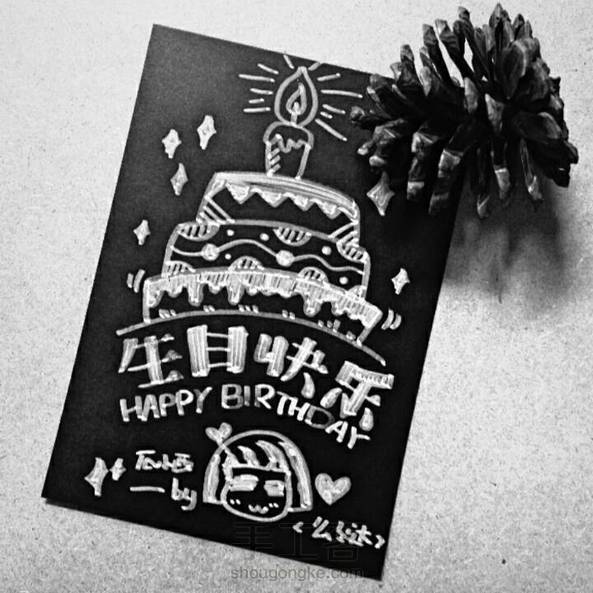 生日快乐
HAPPY BIRTHDAY
by
手工客
shougongke.com